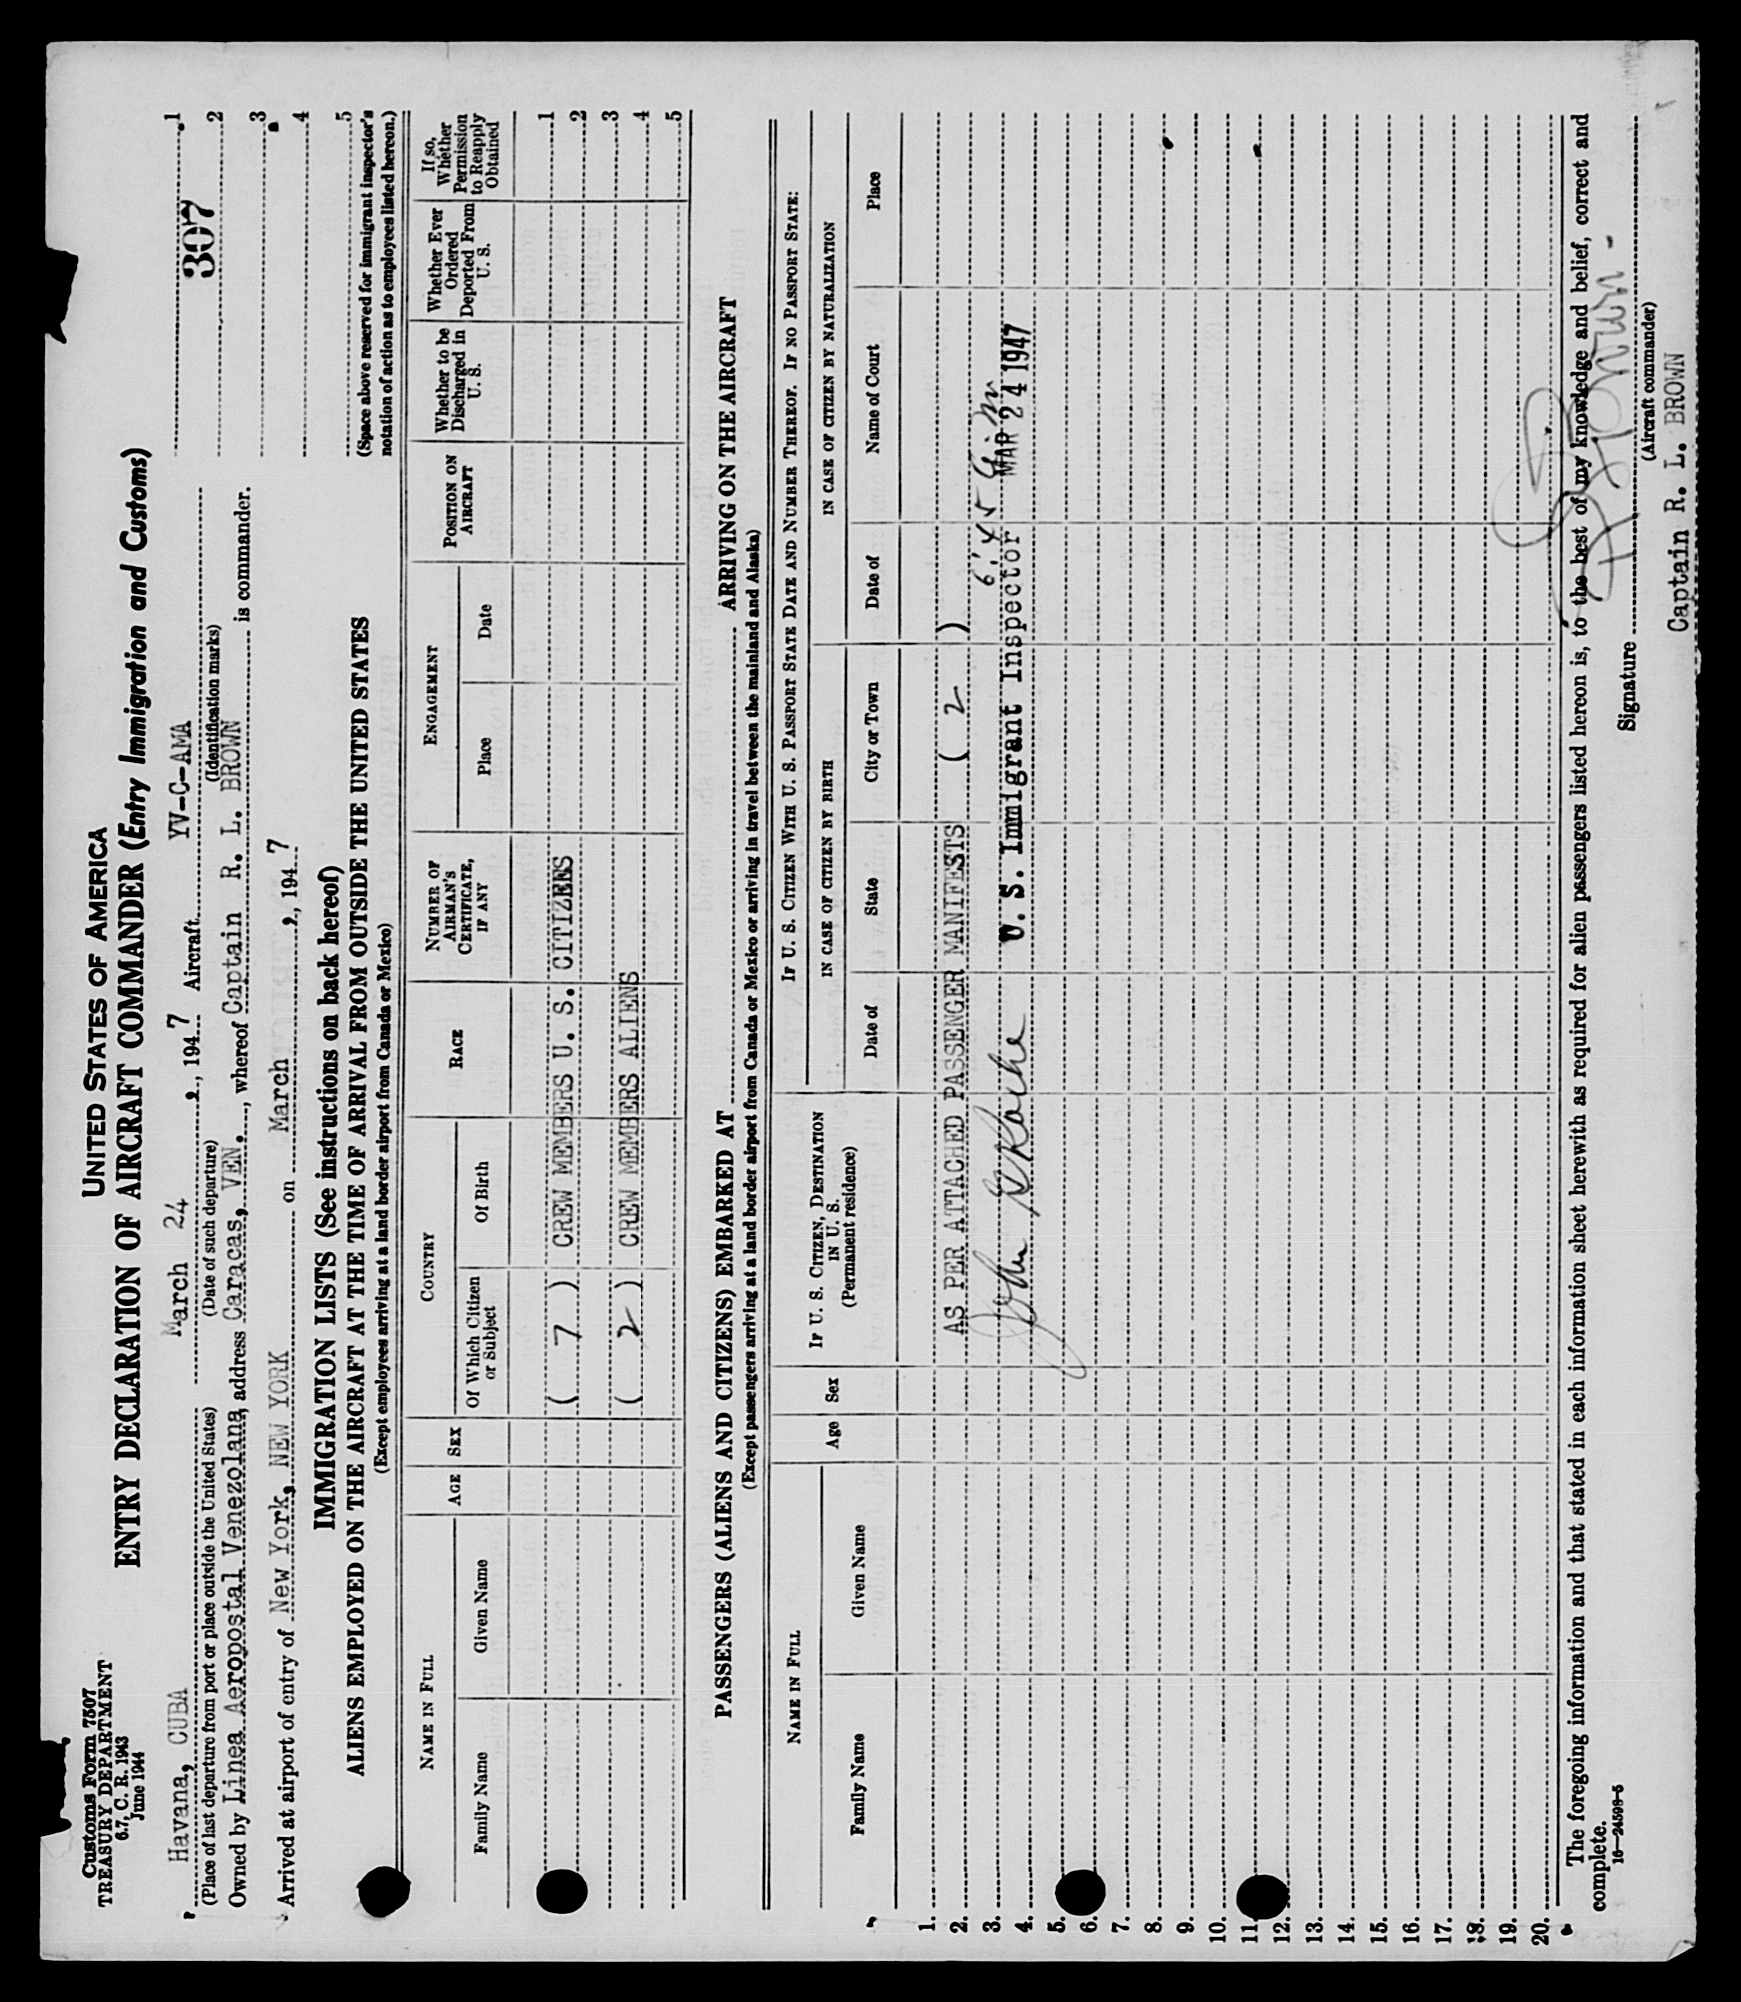 Customs Form 7507
TREASURY DEPARTMENT
6.7, C. R. 1943
June 1944
UNITED STATES OF AMERICA
ENTRY DECLARATION OF AIRCRAFT COMMANDER (Entry Immigration and Customs)
Havana, CUBA March 24, 1947 Aircraft YV-C-AMA
(Place of last departure from port or place outside the United States) (Date of such departure) (Identification marks)
Owned by Linea Aeropostal Venezolana, address Caracas, VEN., whereof Captain R. L. BROWN is commander.
Arrived at airport of entry of New York, NEW YORK on March, 1947
307
1
2
3
4
5
(Space above reserved for immigrant inspector's
notation of action as to employees listed hereon.)
IMMIGRATION LISTS (See instructions on back hereof)
ALIENS EMPLOYED ON THE AIRCRAFT AT THE TIME OF ARRIVAL FROM OUTSIDE THE UNITED STATES
(Except employees arriving at a land border airport from Canada or Mexico)
NAME IN FULL
Family Name
Given Name
AGE
SEX
COUNTRY
Of Which Citizen
or Subject
Of Birth
RACE
NUMBER OF
AIRMAN'S
CERTIFICATE,
IF ANY
ENGAGEMENT
Place
Date
POSITION ON
AIRCRAFT
Whether to be
Discharged in
U. S.
Whether Ever
Ordered
Deported From
U. S.
If so,
Whether
Permission
to Reapply
Obtained
( 7 ) CREW MEMBERS U. S. CITIZENS
( 2 ) CREW MEMBERS ALIENS
1
2
3
4
5
PASSENGERS (ALIENS AND CITIZENS) EMBARKED AT ARRIVING ON THE AIRCRAFT
(Except passengers arriving at a land border airport from Canada or Mexico or arriving in travel between the mainland and Alaska)
NAME IN FULL
Family Name
Given Name
Age
Sex
IF U. S. CITIZEN, DESTINATION
IN U. S.
(Permanent residence)
IF U. S. CITIZEN WITH U. S. PASSPORT STATE DATE AND NUMBER THEREOF. IF NO PASSPORT STATE:
IN CASE OF CITIZEN BY BIRTH
Date of
State
City or Town
IN CASE OF CITIZEN BY NATURALIZATION
Date of
Name of Court
Place
1.
2. AS PER ATTACHED PASSENGER MANIFESTS ( 2 )
3. John 6:45
4. U. S. Immigrant Inspector MAR 24 1947
5.
6.
7.
8.
9.
10.
11
12.
13.
14.
15.
16.
17.
18.
19.
20.
The foregoing information and that stated in each information sheet herewith as required for alien passengers listed hereon is, to the best of my knowledge and belief, correct and
complete.
16—24598-5
Signature R L Brown
(Aircraft commander)
Captain R. L. BROWN